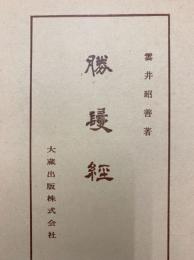 雲井昭善著
勝鬘經
大蔵出版株式会社